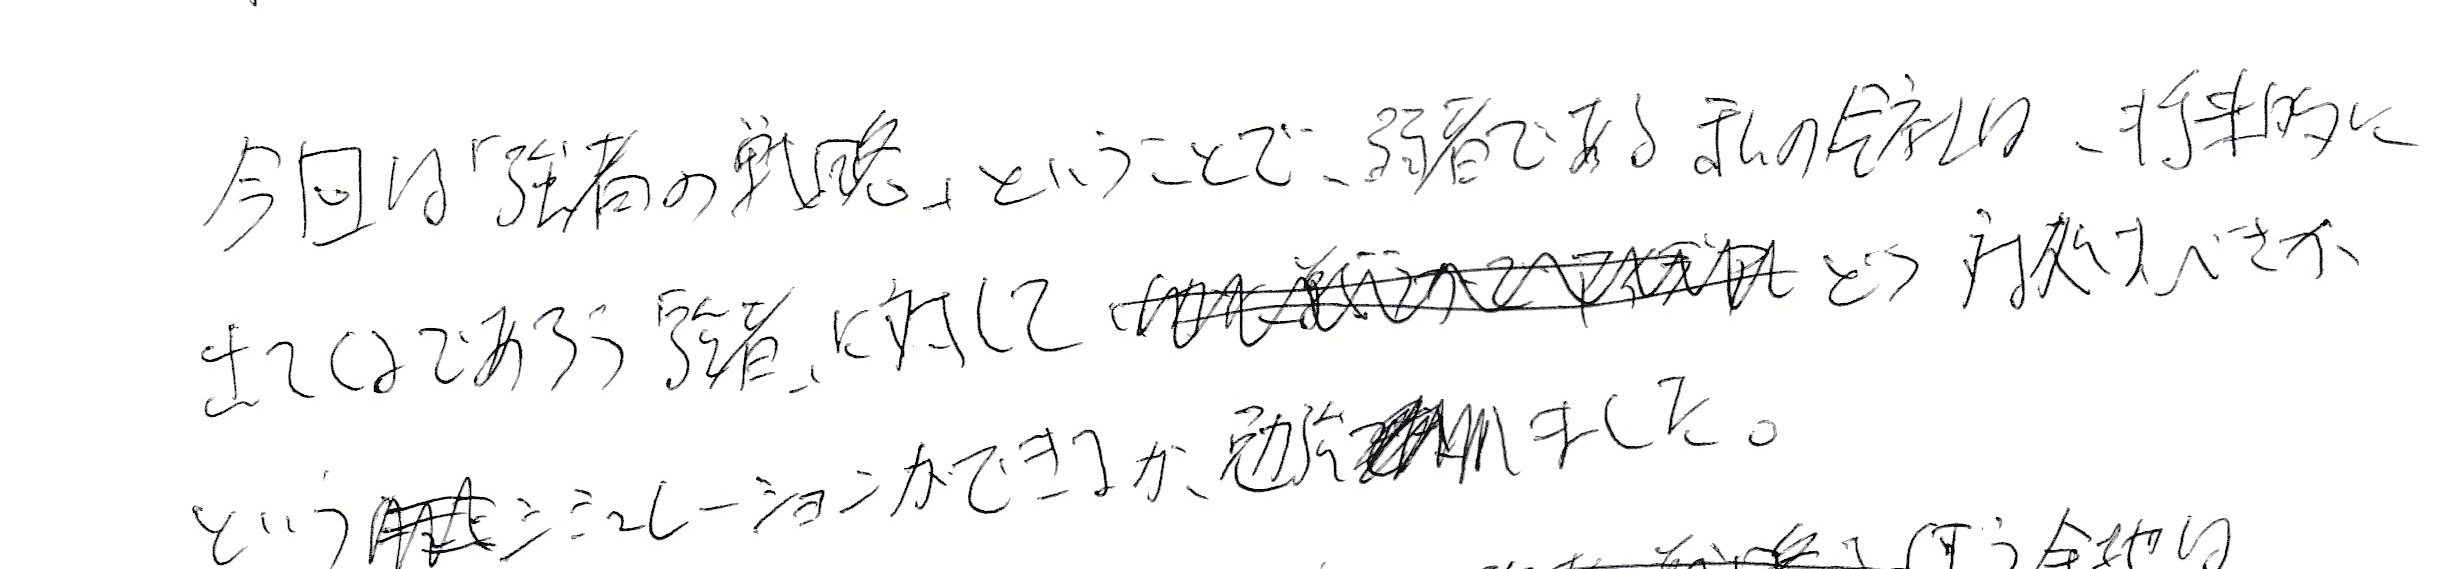 今回は「強者の戦略」ということで、弱者である私の会社は、将来的に
出てくるであろう「強者」に対してどう対処すべきか、
というシミュレーションができるか、勉強しました。
使う余地は